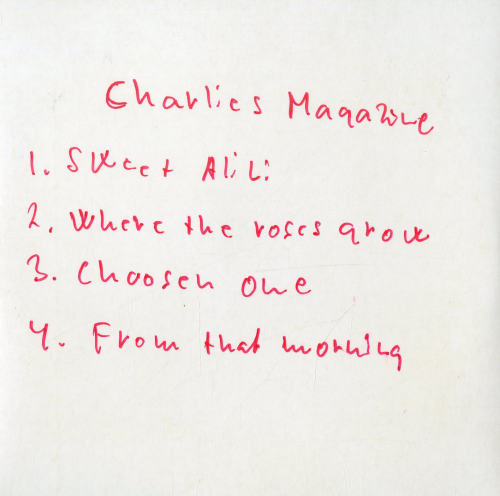 Charlies Magazine
1. Sweet Alili
2. Where the roses grow
3. Choosen one
4. From that morning